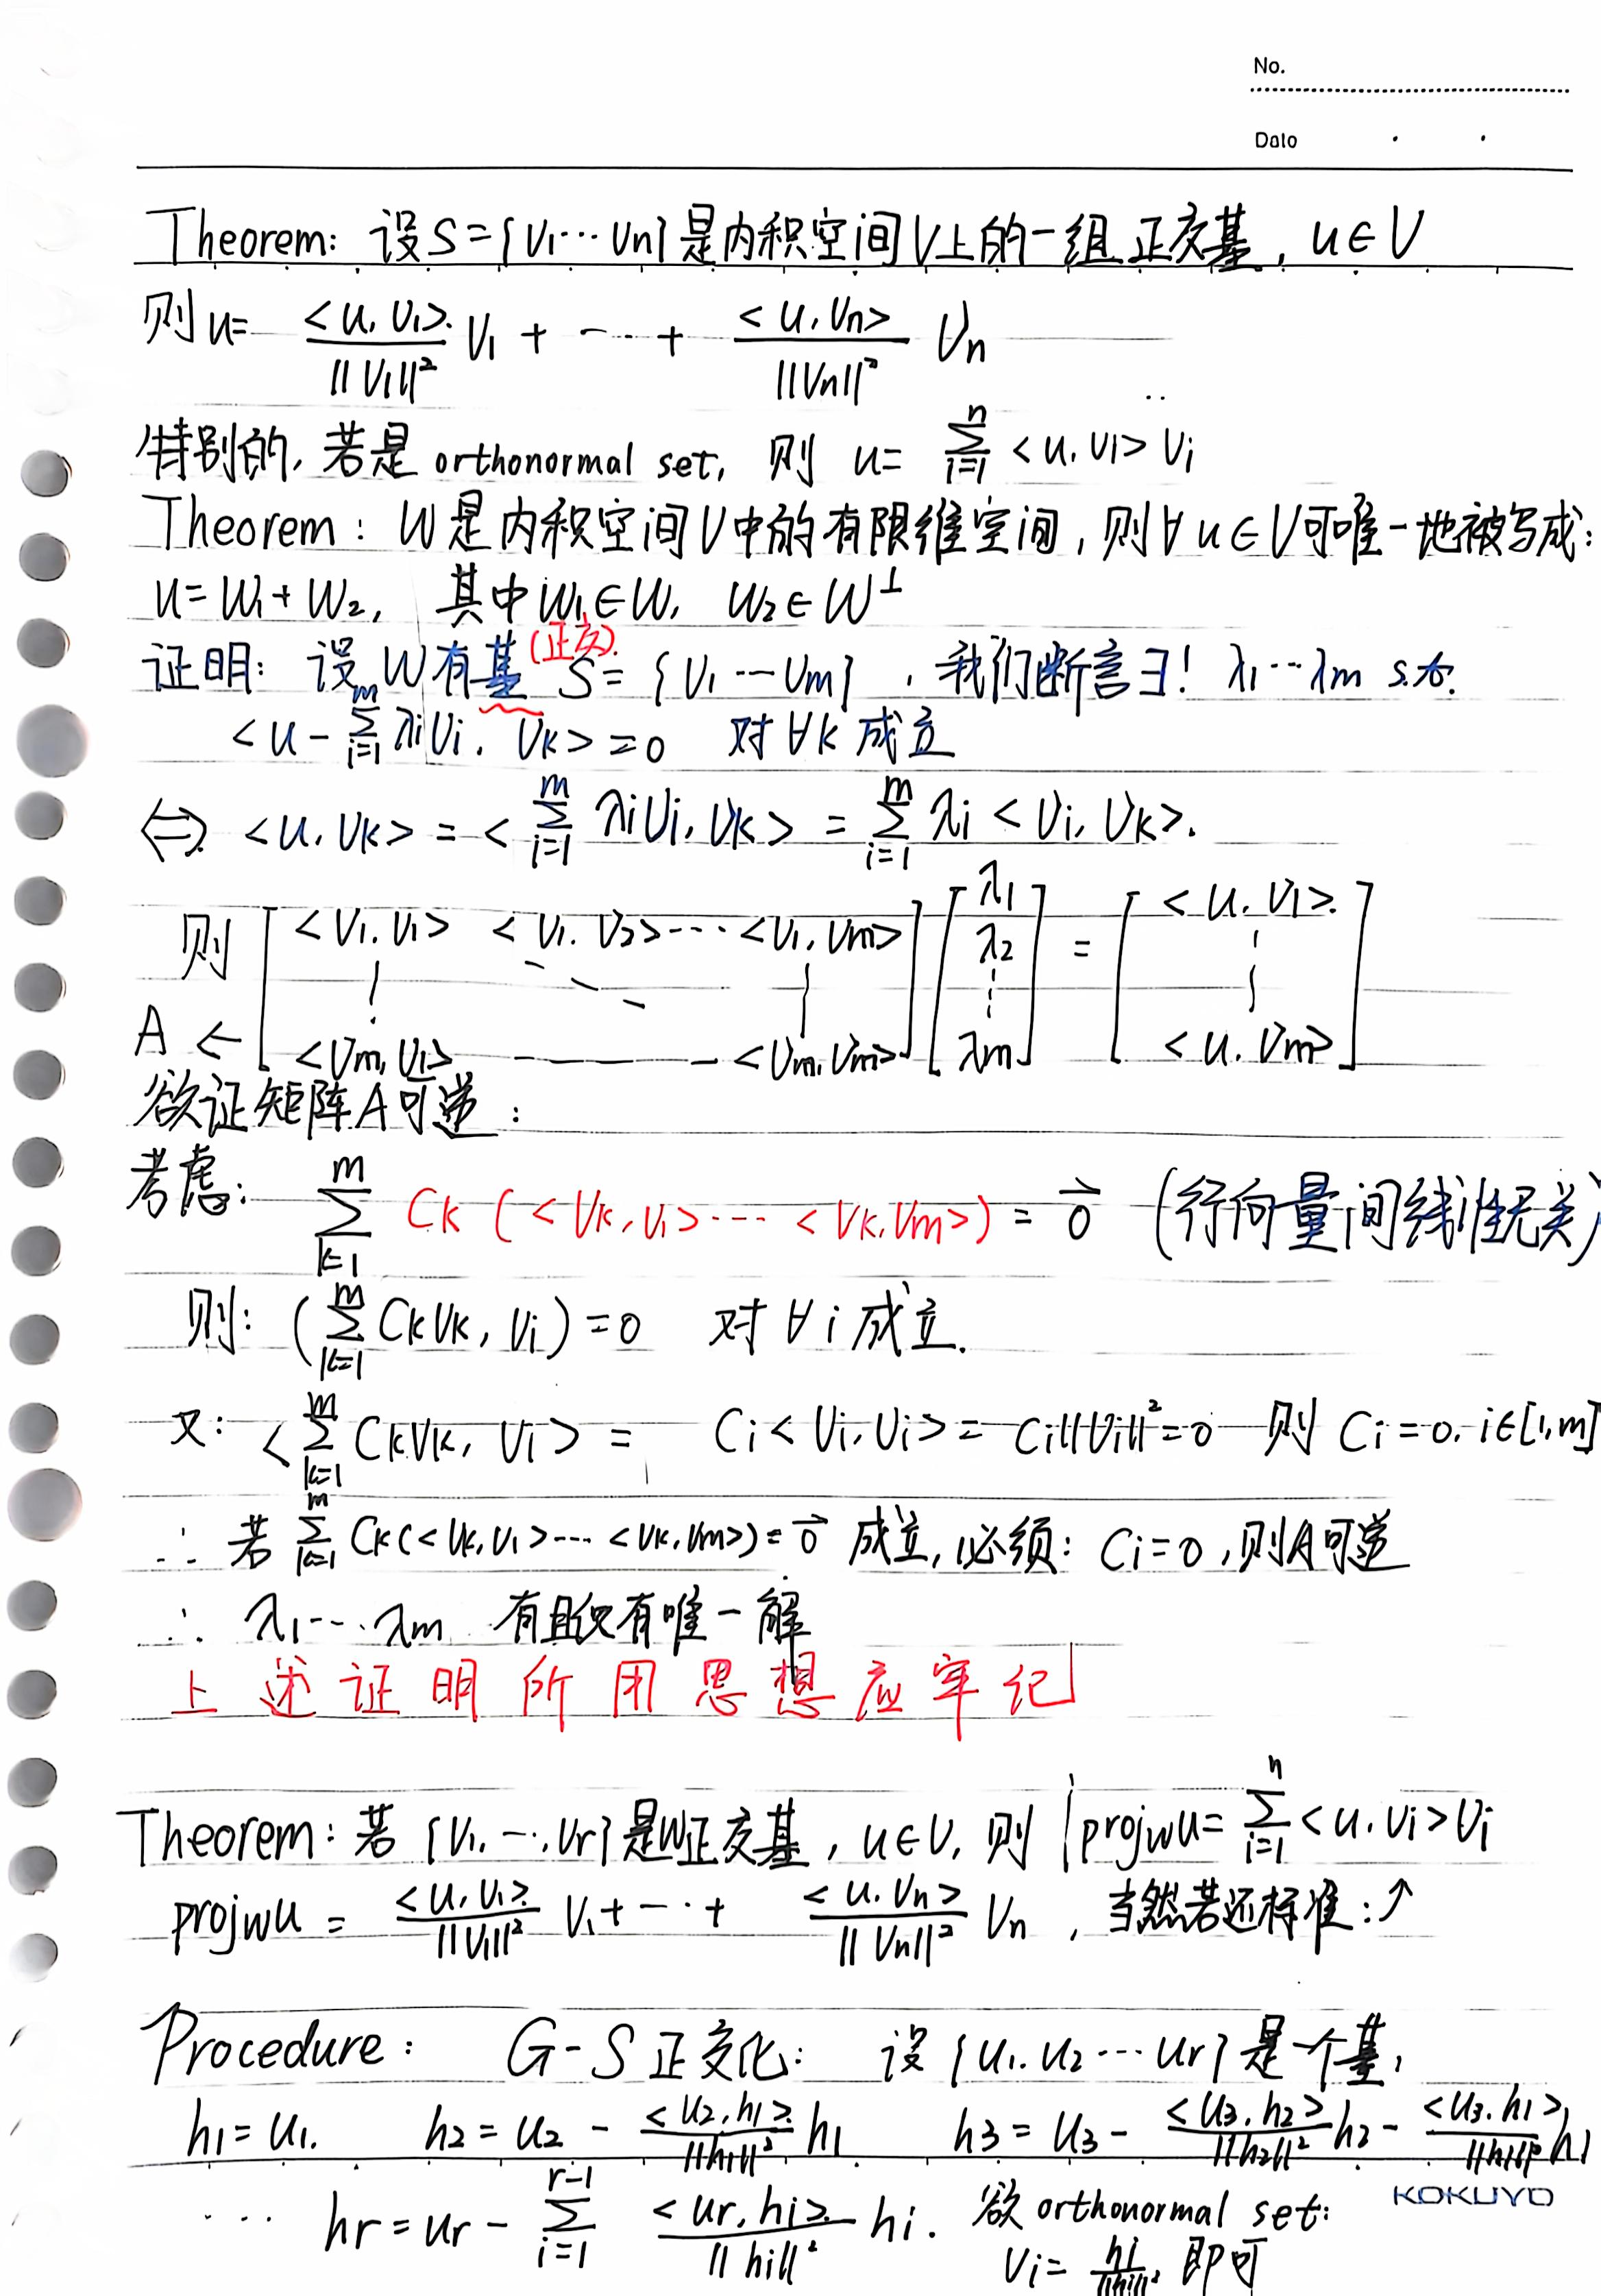 No.
Date
Theorem: 设S={v₁⋯vn}是内积空间V上的一组正交基, u∈V
则 u= <u,v₁>/||v₁||² v₁ + ⋯ + <u,vn>/||vn||² vn
特别的, 若是 orthonormal set, 则 u= Σ_{i=1}^{n} <u,vi> vi
Theorem: W是内积空间V中的有限维空间, 则∀u∈V可唯一地被写成:
u=w₁+w₂, 其中w₁∈W, w₂∈W^⊥
(正交)
证明: 设W有基 S={v₁⋯vm}, 我们断言∃! λ₁⋯λm s.t.
<u-Σ_{i=1}^{m} λivi, vk>=0 对∀k成立
⇔ <u,vk> = <Σ_{i=1}^{m} λivi, vk> = Σ_{i=1}^{m} λi <vi,vk>.
则 [<v₁,v₁> <v₁,v₂>⋯<v₁,vm> ⋮ ⋱ ⋮ <vm,v₁> ⋯ <vm,vm>] [λ₁ λ₂ ⋮ λm] = [<u,v₁> ⋮ <u,vm>]
A ←
欲证矩阵A可逆:
考虑: Σ_{k=1}^{m} Ck (<vk,v₁>⋯<vk,vm>) = 0⃗ (行向量间线性无关)
则: (Σ_{k=1}^{m} Ckvk, vi)=0 对∀i成立.
又: <Σ_{k=1}^{m} Ckvk, vi> = Ci<vi,vi>=Ci||vi||²=0 则 Ci=0, i∈[1,m]
∴ 若 Σ_{k=1}^{m} Ck(<vk,v₁>⋯<vk,vm>)=0⃗ 成立, 必须: Ci=0, 则A可逆
∴ λ₁⋯λm 有且仅有唯一解
上述证明所用思想应牢记
Theorem: 若{v₁,⋯,vr}是W正交基, u∈V, 则 | projwu= Σ_{i=1}^{n} <u,vi>vi
projwu = <u,v₁>/||v₁||² v₁+⋯+ <u,vn>/||vn||² vn, 当然若还标准:↗
Procedure: G-S正交化: 设{u₁,u₂⋯ur}是一个基,
h₁=u₁. h₂=u₂ - <u₂,h₁>/||h₁||² h₁ h₃=u₃- <u₃,h₂>/||h₂||² h₂- <u₃,h₁>/||h₁||² h₁
⋯ hr=ur- Σ_{i=1}^{r-1} <ur,hi>/||hi||² hi. 欲 orthonormal set:
vi= hi/||hi||², 即可
KOKUYO